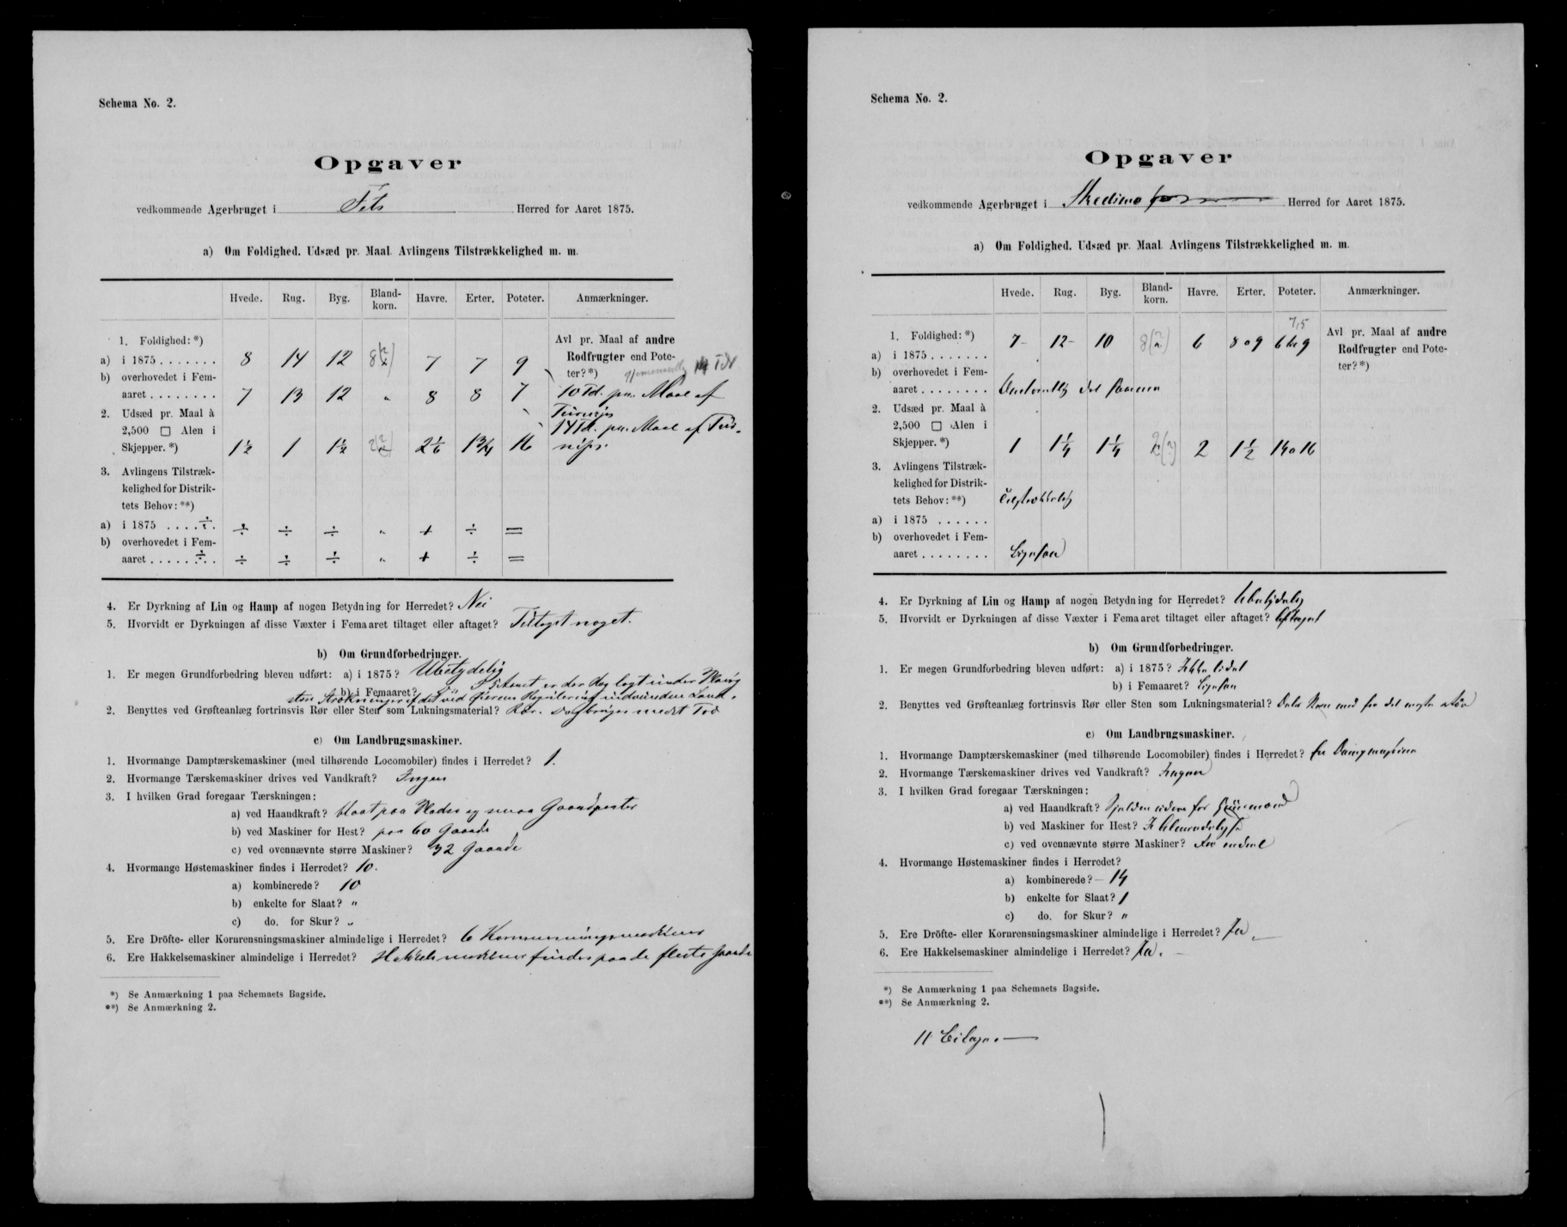 Schema No. 2.
Opgaver
vedkommende Agerbruget i Fets Herred for Aaret 1875.
a) Om Foldighed. Udsæd pr. Maal. Avlingens Tilstrækkelighed m. m.
Hvede. Rug. Byg. Bland-korn. Havre. Erter. Poteter. Anmærkninger.
1. Foldighed: *)
a) i 1875 . . . . . . . 8 14 12 8 7 7 9
b) overhovedet i Fem-
aaret . . . . . . . . 7 13 12 „ 8 8 7
2. Udsæd pr. Maal à
2,500 □ Alen i
Skjepper. *) 1½ 1 1½ 2 16
3. Avlingens Tilstræk-
kelighed for Distrik-
tets Behov: **)
a) i 1875 . . . . ÷ ÷ ÷ ÷ „ + ÷ =
b) overhovedet i Fem-
aaret . . . . . . ÷ ÷ ÷ ÷ „ + ÷ =
Avl pr. Maal af andre
Rodfrugter end Pote-
ter? *)
10 Td. pr. Maal af
Turnips
14 Td. pr. Maal af Tur-
nips.
4. Er Dyrkning af Lin og Hamp af nogen Betydning for Herredet? Nei
5. Hvorvidt er Dyrkningen af disse Væxter i Femaaret tiltaget eller aftaget? Tiltaget noget.
b) Om Grundforbedringer.
1. Er megen Grundforbedring bleven udført: a) i 1875? Ubetydelig
b) i Femaaret?
2. Benyttes ved Grøfteanlæg fortrinsvis Rør eller Sten som Lukningsmaterial? Rør.
c) Om Landbrugsmaskiner.
1. Hvormange Damptærskemaskiner (med tilhørende Locomobiler) findes i Herredet? 1.
2. Hvormange Tærskemaskiner drives ved Vandkraft? Ingen
3. I hvilken Grad foregaar Tærskningen:
a) ved Haandkraft? blot paa Pladse og smaa Gaardparter
b) ved Maskiner for Hest? paa 60 Gaarde
c) ved ovennævnte større Maskiner? 32 Gaarde
4. Hvormange Høstemaskiner findes i Herredet? 10.
a) kombinerede? 10
b) enkelte for Slaat? „
c) do. for Skur? „
5. Ere Dröfte- eller Kornrensningsmaskiner almindelige i Herredet? 6 Kornrensningsmaskiner
6. Ere Hakkelsemaskiner almindelige i Herredet? Hakkelsmaskiner findes paa de fleste Gaarde
*) Se Anmærkning 1 paa Schemaets Bagside.
**) Se Anmærkning 2.
Schema No. 2.
Opgaver
vedkommende Agerbruget i Skedsmo Herred for Aaret 1875.
a) Om Foldighed. Udsæd pr. Maal. Avlingens Tilstrækkelighed m. m.
Hvede. Rug. Byg. Bland-korn. Havre. Erter. Poteter. Anmærkninger.
1. Foldighed: *) 7,5
a) i 1875 . . . . . . . 7 12 10 8 6 8 a 9 6 til 9
b) overhovedet i Fem-
aaret . . . . . . . . Omtrentlig det samme
2. Udsæd pr. Maal à
2,500 □ Alen i
Skjepper. *) 1 1¼ 1¼ 2 2 1½ 14 a 16
3. Avlingens Tilstræk-
kelighed for Distrik-
tets Behov: **) Tilstrækkelig
a) i 1875 . . . . . .
b) overhovedet i Fem-
aaret . . . . . . . . Ligesaa
Avl pr. Maal af andre
Rodfrugter end Pote-
ter? *)
4. Er Dyrkning af Lin og Hamp af nogen Betydning for Herredet? Ubetydelig
5. Hvorvidt er Dyrkningen af disse Væxter i Femaaret tiltaget eller aftaget? Aftaget
b) Om Grundforbedringer.
1. Er megen Grundforbedring bleven udført: a) i 1875? Ikke lidet
b) i Femaaret? Ligesaa
2. Benyttes ved Grøfteanlæg fortrinsvis Rør eller Sten som Lukningsmaterial?
c) Om Landbrugsmaskiner.
1. Hvormange Damptærskemaskiner (med tilhørende Locomobiler) findes i Herredet? En Dampmaskine
2. Hvormange Tærskemaskiner drives ved Vandkraft? Ingen
3. I hvilken Grad foregaar Tærskningen:
a) ved Haandkraft? Sjelden uden for Huusmænd
b) ved Maskiner for Hest?
c) ved ovennævnte større Maskiner?
4. Hvormange Høstemaskiner findes i Herredet?
a) kombinerede? 14
b) enkelte for Slaat? 1
c) do. for Skur? „
5. Ere Dröfte- eller Kornrensningsmaskiner almindelige i Herredet? Ja
6. Ere Hakkelsemaskiner almindelige i Herredet? Ja.
*) Se Anmærkning 1 paa Schemaets Bagside.
**) Se Anmærkning 2.
11 Bilage.